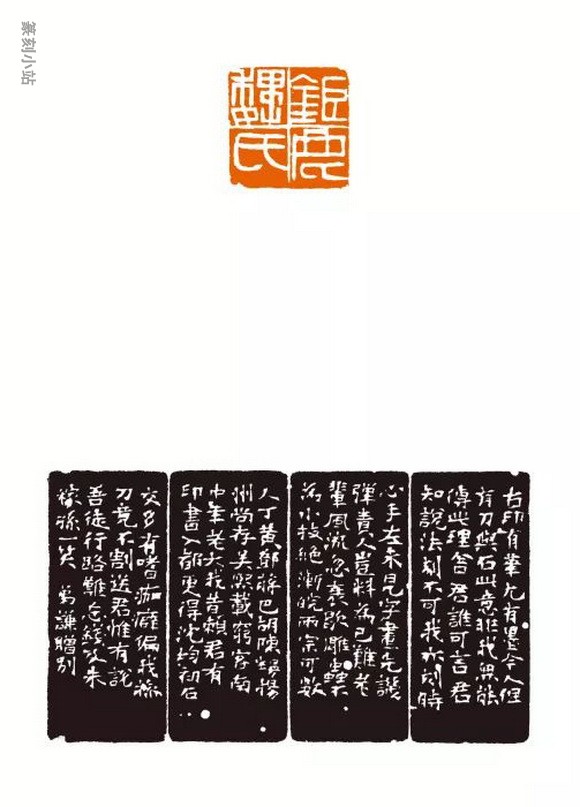 篆刻小站
鉅鹿
魏氏
古印有筆尤有墨今人但
有刀與石此意非我無能
傳此理舍君誰可言君
知說法刻不可我亦刻時
心手左未見字畫先譏
彈責人豈料為己難老
輩風流忽衰歇雕蟲不
為小技絕浙皖兩宗可數
人丁黃鄧蔣巴胡陳揚
州尚存吳熙載窮客南
中年老大我昔賴君有
印書入都更得沈均初石
交多有嗜痂癖偏我操
刀竟不割送君惟有說
吾徒行路難忘錢及朱
稼孫一笑 弟謙贈別